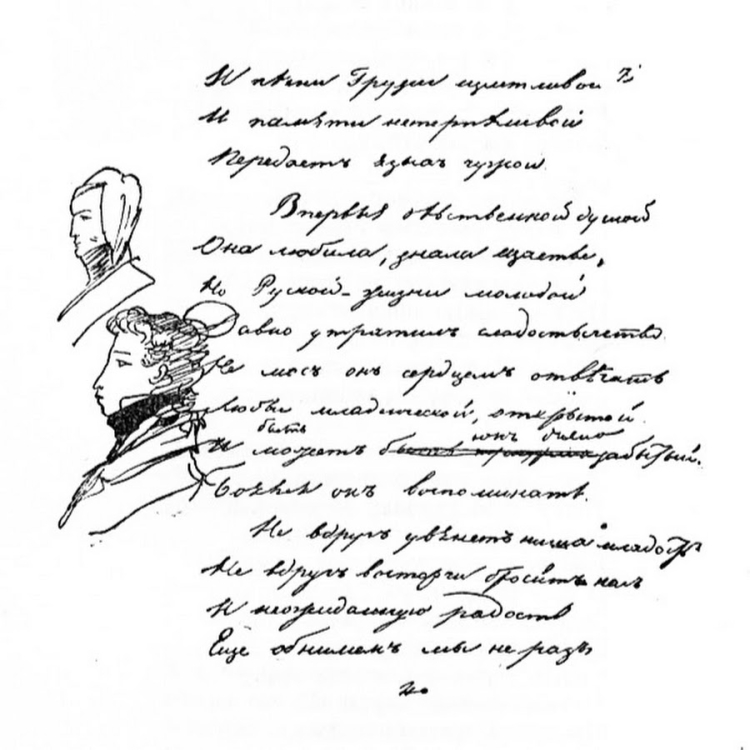 И пѣсни Грузіи щастливой 7)
И памяти нетерпѣливой
Передаетъ языкъ чужой
Впервые дѣвственной душой
Она любила, знала щастье,
Но Руской жизни молодой
Давно утратилъ сладострастье
Не могъ онъ сердцемъ отвѣчать
Любви младенческой, открытой
быть сонъ
И можетъ забытый
Боялся онъ воспоминать.
Не вдругъ увянетъ наша младость
Не вдругъ восторги бросятъ насъ
И неожиданную радость
Еще обнимемъ мы не разъ